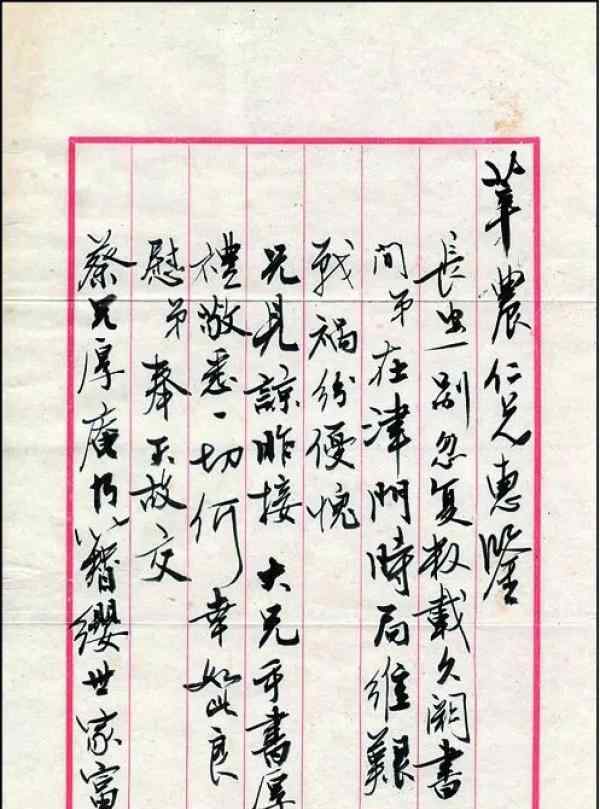 莘農仁兄惠鑒
長一别忽复数載久闕書
間弟在津門時局維艱
戰禍紛擾愧
兄見諒昨接大兄手書厚
禮敬悉一切何幸如此良
慰弟奉天故交
蔡兄厚庵乃簪纓世家富